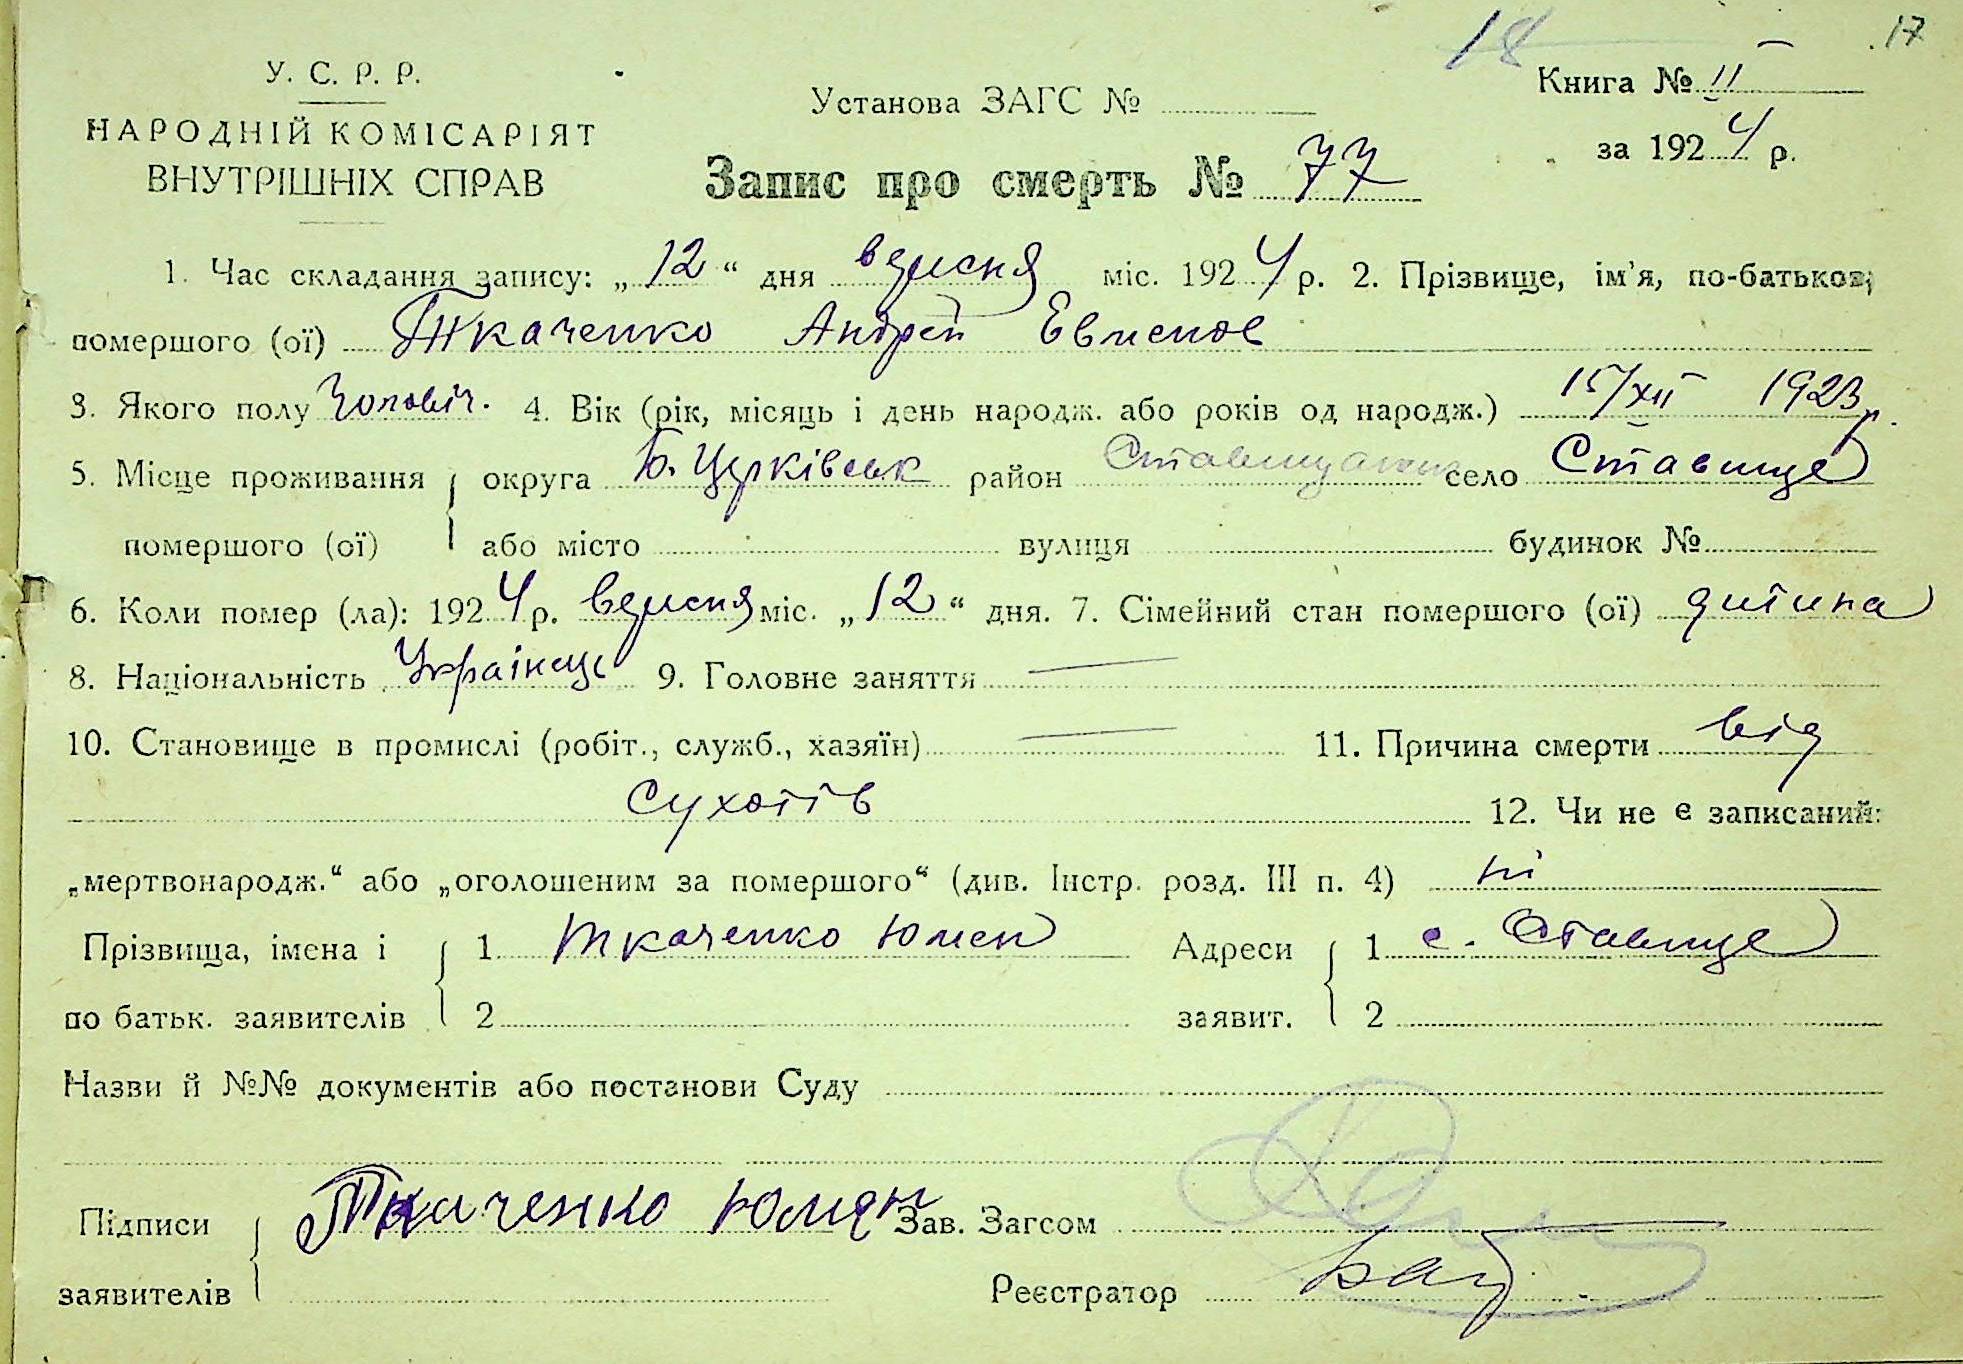 18 17
У. С. Р. Р.
НАРОДНІЙ КОМІСАРІЯТ
ВНУТРІШНІХ СПРАВ
Установа ЗАГС №
Книга № II
за 1924 р.
Запис про смерть № 77
1. Час складання запису: „12“ дня вересня міс. 1924 р. 2. Прізвище, ім'я, по-батькові
помершого (ої) Ткаченко Андрей Евменов
3. Якого полу Чоловіч. 4. Вік (рік, місяць і день народж. або років од народж.) 15/XII 1923 р.
5. Місце проживання округа Б. Церківськ район село Ставище
помершого (ої) або місто вулиця будинок №
6. Коли помер (ла): 1924 р. вересня міс. „12“ дня. 7. Сімейний стан помершого (ої) дитина
8. Національність Українець 9. Головне заняття —
10. Становище в промислі (робіт., служб., хазяїн) — 11. Причина смерти від
сухотів 12. Чи не є записаний:
„мертвонародж.“ або „оголошеним за помершого“ (див. Інстр. розд. III п. 4) ні
Прізвища, імена і 1 Ткаченко Юмен Адреси 1 с. Ставище
по батьк. заявителів 2 заявит. 2
Назви й №№ документів або постанови Суду
Підписи Ткаченко Юмен Зав. Загсом
заявителів Реєстратор